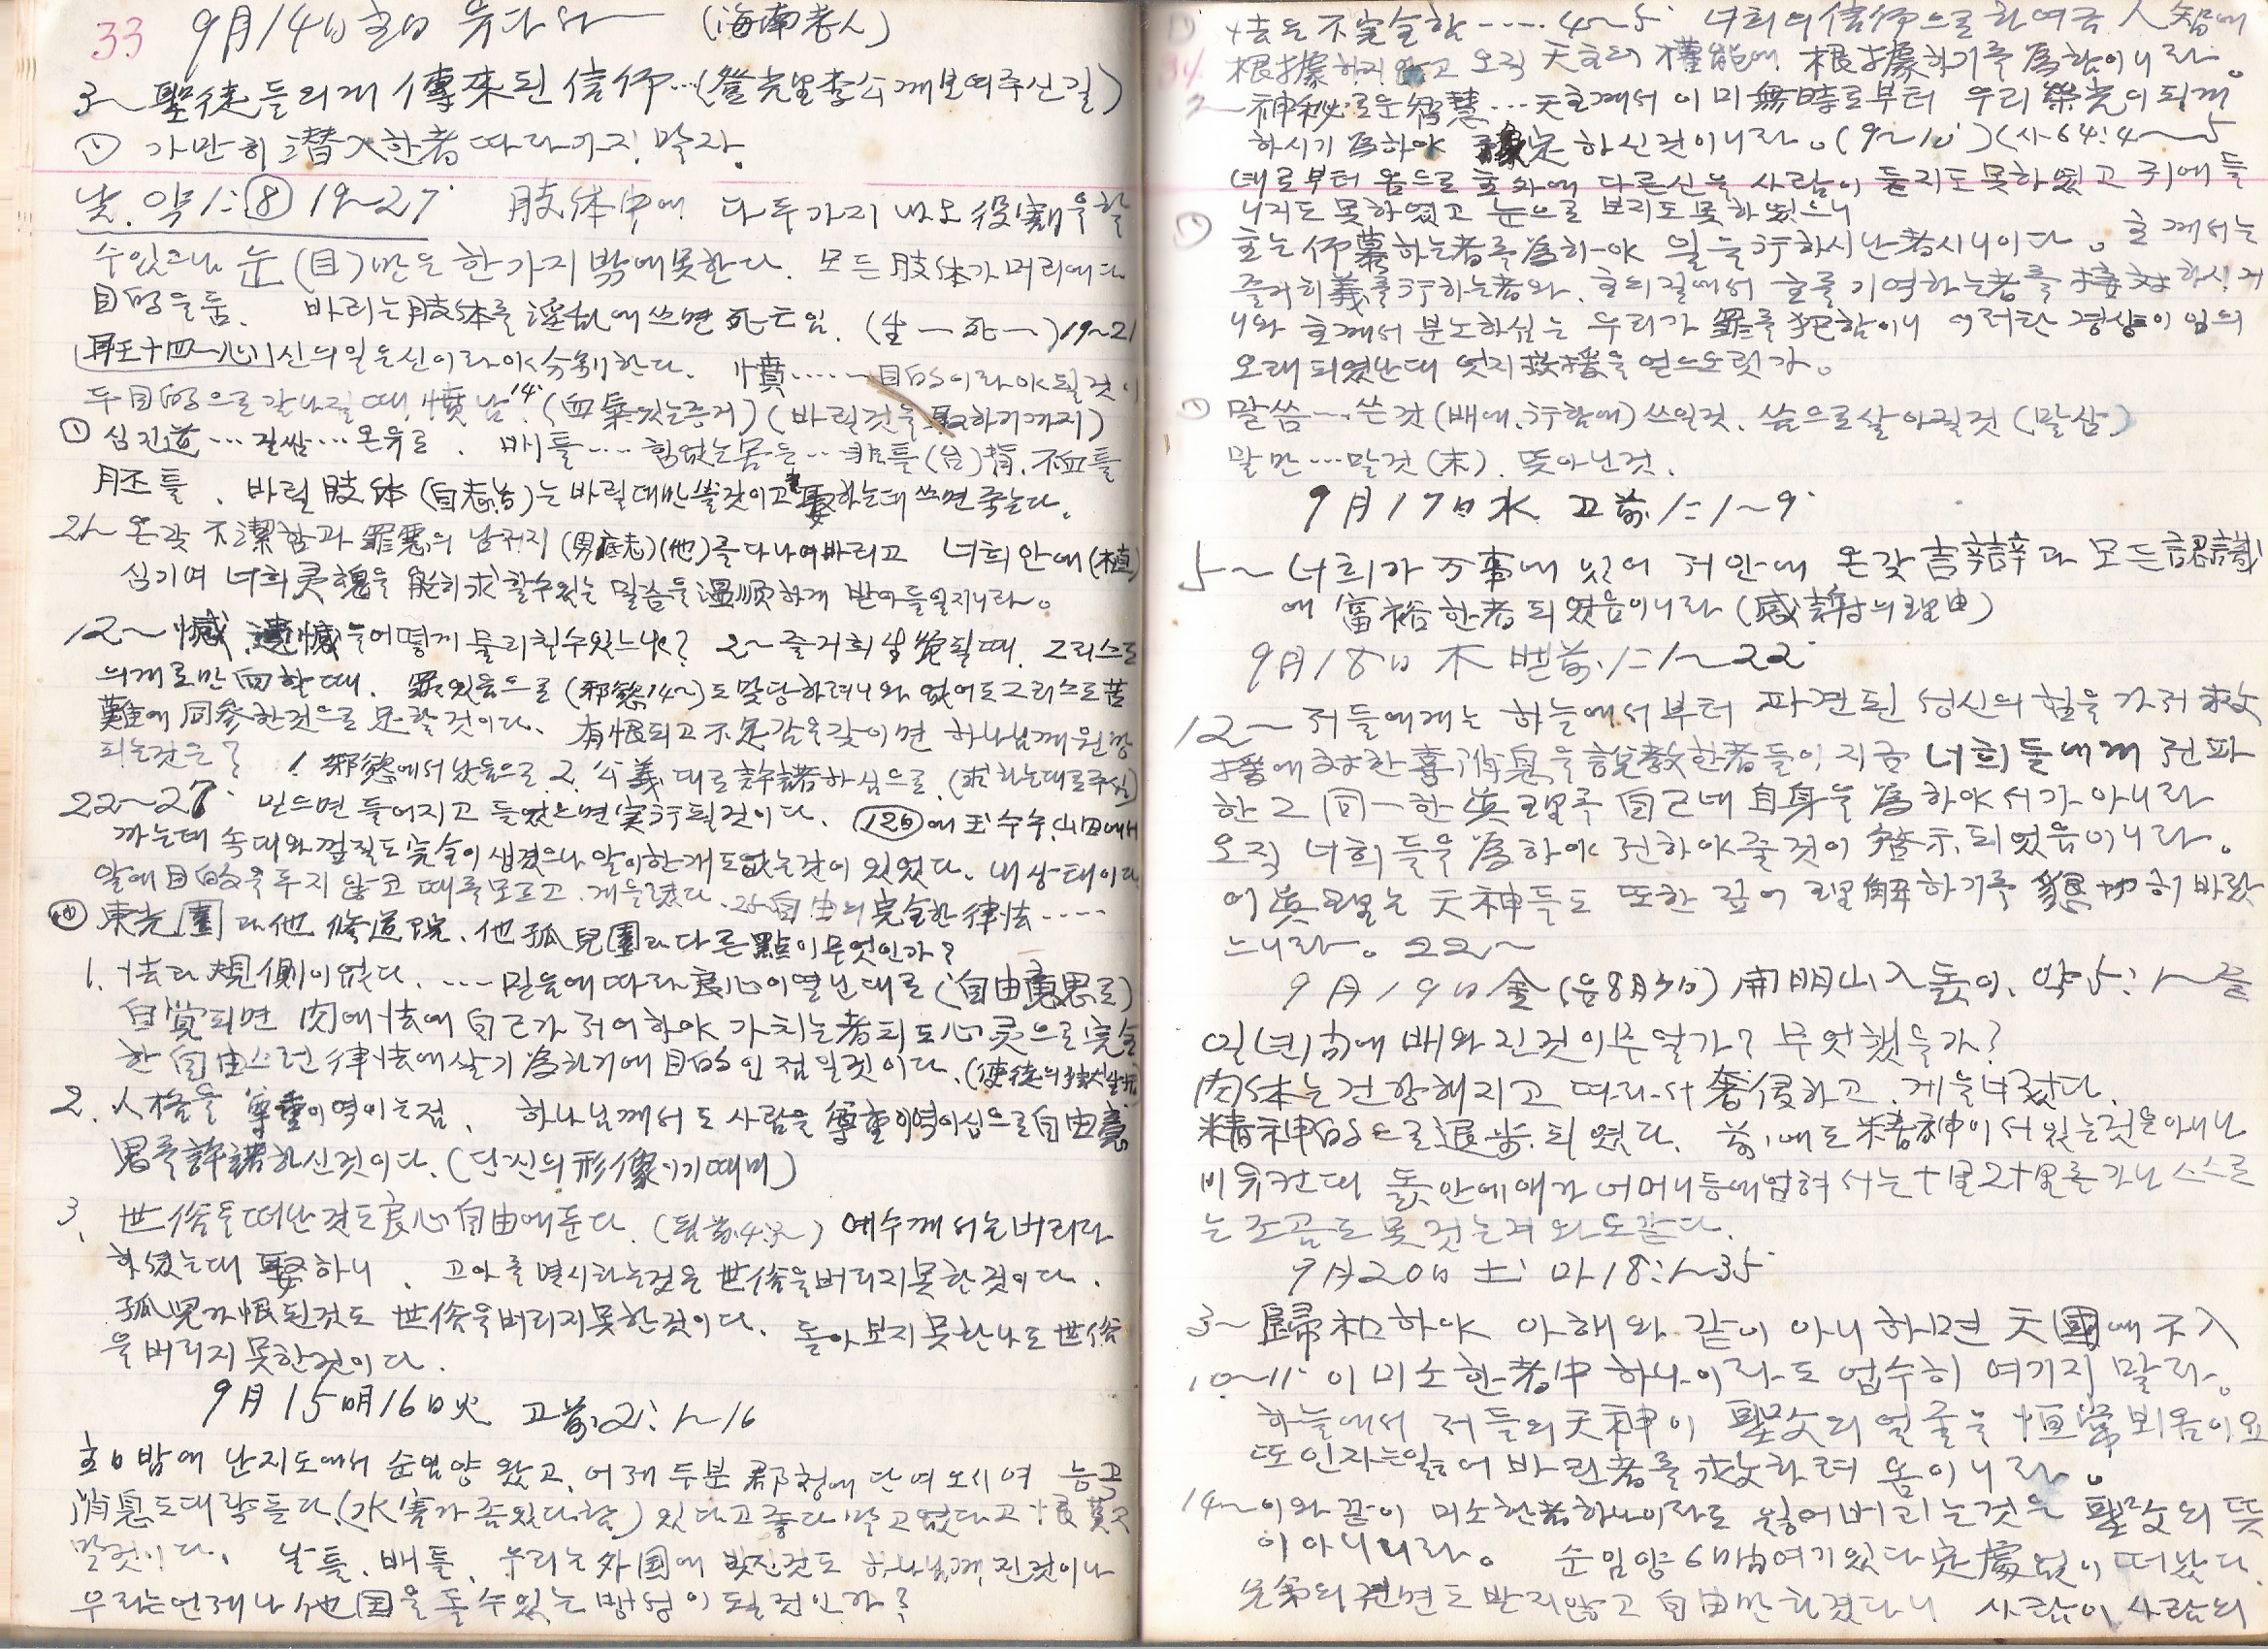 33 9月14日 主日 유다서 (海南老人)
3~ 聖徒들의게 傳來된 信仰…(登光里李公게보여주신길)
① 가만히 潛入한者 따라가지 말자.
낮. 약1:⑧ 19~27 肢体中에 다 두가지 내요 役割을 할
수있으나 눈(目)만은 한가지 밖에못한다. 모든 肢体가 머리에다
目的을둠. 바리는 肢体를 淫乱에쓰면 死亡임. (生―死―) 19~21
신의일은신이라야 分別한다. 憤……目的이라야될것이
두目的으로 갈나질때 憤남 (血氣있는증거) (바릴것을 取하기까지)
배틀…. 힘없는몸을…
胚틀. 바릴 肢体 는 바릴대만 쓸것이고 取하는데 쓰면 죽는다.
21~ 온갖 不潔함과 罪惡의 남저지 를 다 나여바리고 너희안에(植)
심기여 너희灵魂을 能히求할수있는 말슴을 溫順하게 받아들일지니라.
12~ 憾 遺憾을 어떻게 물리칠수있느냐? 2~ 즐거히 生覺될때. 그리스도
의게로만 向할때. 罪있음으로 (邪慾14~)도 맛당하려니와 없어도 그리스도 苦
難에 同參한것으로 足할것이다. 有恨되고 不足감을갖이면 하나님께 원망
되는것은? 1 邪慾에서 났음으로 2. 公義대로 許諾하심으로. (求하는대로주심)
22~27 믿으면 들어지고 들었으면 実行될것이다. (12日)에 玉수수 山田에서
까는데 속대와 껍질도 完全이 생겼으나 알이한개도없는것이 있었다. 내상태이다
알에 目的을 두지 않고 때를모르고. 게을렀다. 25 自由의 完全한 律法……
東光園과 他 修道院. 他孤兒園과 다른點이 무엇인가?
1. 法과 規側이 없다. …. 믿음에 따라 良心이열닌대로 (自由意思로)
自覚되면 肉에法에 自己가 저어하야 가치는者되도 心灵으로 完全
한 自由스런 律法에살기 為하기에 目的인 점일것이다.
2. 人格을 尊重이역이는점. 하나님께서도 사람을 尊重이역이심으로 自由意
思를 許諾하신것이다. (단신의 形像이기때미)
3. 世俗을떠난것도 良心自由에둔다. 예수께서는버리라
하셨는대 娶하니. 고아를 멸시하는것은 世俗을버리지못한것이다.
孤児가 恨된것도 世俗을버리지못한것이다. 돌아보지못한나도 世俗
을버리지못한것이다.
9月15日月16日火 고前2:1~16
主日밤에 난지도에서 순임양 왔고. 어제 두분 郡청에 단여오시여 능곡
消息도대략듣다. (水害가 좀있다함) 있다고좋다말고 없다고 恨莫天
말것이다. 날틀. 배틀. 우리는外国에 빚진것도 하나님께 진것이나
우리는언제나 他国을 돌수있는 방형이 될것인가?
34
法은 不完全함…. 4~5 너희의 信仰으로 하여금 人智에
根據하지 않고 오직 天主의 權能에 根據하기를 爲함이니라.
~ 神秘로운 智慧…天主께서 이미 無時로부터 우리 榮光이되게
하시기 爲하야 豫定하신것이니라. (9~10) (사64:4~5
녜로부터 옴으로 主外에 다른신을 사람이 듣지도 못하였고 귀에 들
니지도 못하였고 눈으로 보지도못하였으니
主는 仰慕하는者를 為하야 일을 行하시난者시니이다. 主께서는
즐거히 義를行하는者와. 主의길에서 主를 기억하는者를 接対하시거
니와 主께서 분노하심는 우리가 罪를犯함이니 이러한 경상이 임의
오래되였난대 엇지 救援을 얻으오릿가.
말씀…쓴것 (배에, 行함에) 쓰일것. 씀으로살아질것 (말삼)
말만…말것(末). 뜻아닌것.
9月17日水 고前1:1~9
5~ 너희가 万事에 있어 저안에 온갖 言辞와 모든 認識
에 富裕한者되였음이니라 (感謝의理由)
9月18日木 벧前1:1~22
12~ 저들에게는 하늘에서부터 파견된 성신의힘을 가저 救
援에対한 喜消息을 説教한者들이 지금 너희들에게 전파
한 그 同一한 眞理를 自己네 自身을 爲하야서가 아니라
오직 너희들을 爲하야 전하야줄것이 啓示되였음이니라.
이 眞理는 天神들도 또한 깊이 理解하기를 懇切히 바랐
느니라. 22~
9月19日金 (음8月3日) 開明山入돐이. 약5:1~들
일년間에 배와진것이무엇가? 무엇했을가?
肉体는 건강해지고 따라서 奢侈하고. 게을너졌다.
精神的으로 退步되였다. 前에도 精神이 서있는것은아니나
비유컨대 돐안에애가 어머니등에업혀서는 十里2十里를 가나 스스로
는 조곰도 못것는거와도같다.
9月20日土 마18:1~35
3~ 歸和하야 아해와 같이 아니하면 天國에 不入
10~11 이 미소한者中 하나이라도 업수히 여기지 말라.
하늘에서 저들의天神이 聖父의 얼굴을 恒常뵈옴이요
또인자는잃어바린者를 救하려 옴이니라.
14~ 이와같이 미소한者하나이라도 잃어버리는것은 聖父의 뜻
이아니니라. 순임양 6日間여기있다 定處없이 떠났다.
兄弟의 권면도 받지않고 自由만 하겠다니 사람이 사람의